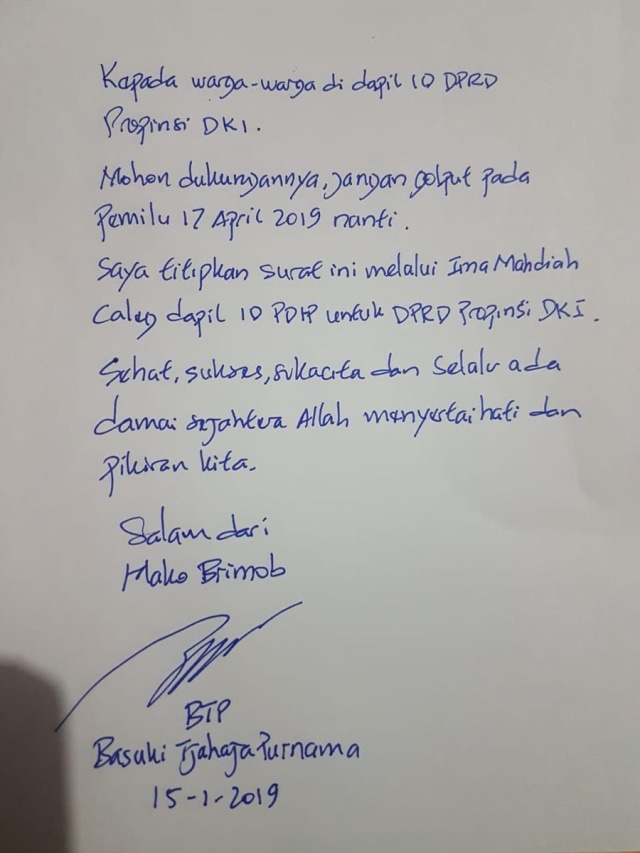 Kepada warga-warga di dapil 10 DPRD
Propinsi DKI.
Mohon dukungannya, jangan golput pada
Pemilu 17 April 2019 nanti.
Saya titipkan surat ini melalui Ima Mahdiah
Caleg dapil 10 PDIP untuk DPRD Propinsi DKI.
Sehat, sukses, sukacita dan selalu ada
damai sejahtera Allah menyertai hati dan
pikiran kita.
Salam dari
Mako Brimob
BTP
Basuki Tjahaja Purnama
15-1-2019